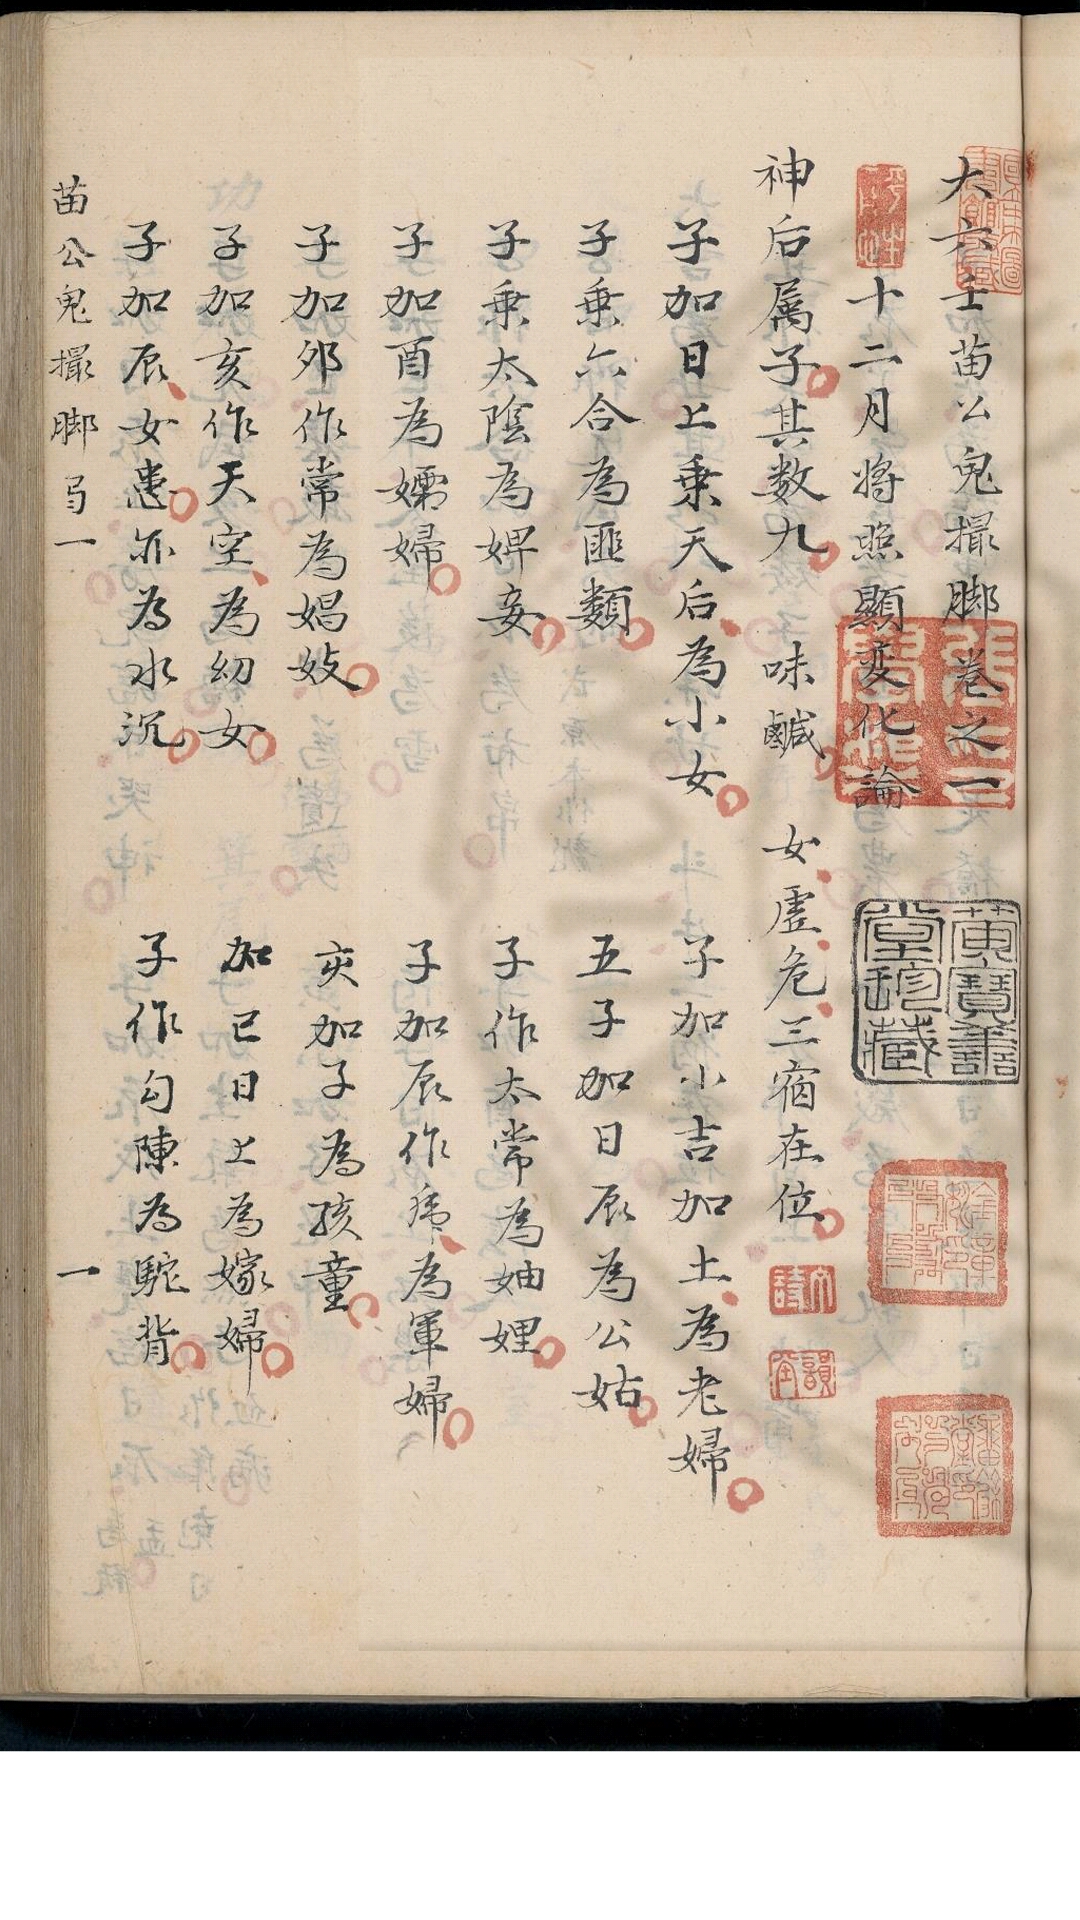 大六壬苗公鬼撮脚卷之一
十二月將照顯变化論
神后属子其数九 味鹹 女虚危三宿在位
子加日上乗天后為小女 子加小吉加土為老婦
子乗六合為匪類 五子加日辰為公姑
子乗太陰為婢妾 子作太常為妯娌
子加酉為孀婦 子加辰作虎為軍婦
子加夘作常為娼妓 亥加子為孩童
子加亥作天空為幼女 加巳日上為嫁婦
子加辰女患亦為水沉 子作勾陳為駝背
苗公鬼撮脚 一 一
黄寶善堂珍藏